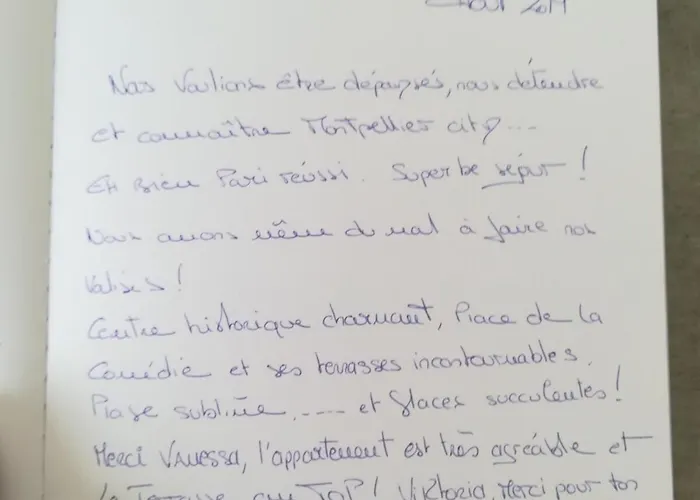 Août 2019
Nous voulions être dépaysés, nous détendre
et connaître Montpellier city...
Eh Bien Pari réussi. Superbe séjour !
Nous avons même du mal à faire nos
valises !
Centre historique charmant, Place de la
Comédie et ses terrasses incontournables.
Plage sublime ..... et Glaces succulentes !
Merci Vanessa, l'appartement est très agréable et
la Terrasse au TOP ! Viktoria, Merci pour tes